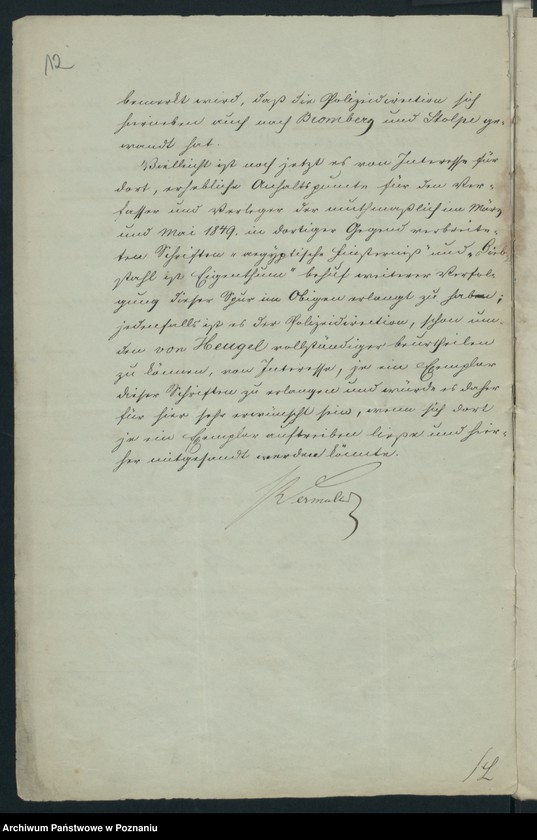 12
bemerkt wird, daß die Polizeidirection sich
hierneben auch nach Bromberg und Stolpe ge-
wandt hat.
Vielleicht ist noch jetzt es von Interesse für
dort, erhebliche Anhaltspunkte für den Ver-
fasser und Verleger der muthmaßlich im März
und Mai 1849. in dortiger Gegend verbreite-
ten Schriften „aegyptische Finsterniß" und „Dieb-
stahl ist Eigenthum" behuf weiterer Verfol-
gung dieser Spur im Obigen erlangt zu haben;
jedenfalls ist es der Polizeidirection, schon um
den von Heugel vollständiger beurtheilen
zu können, von Interesse, je ein Exemplar
dieser Schriften zu erlangen und würde es daher
für hier sehr erwünscht sein, wenn sich dort
je ein Exemplar auftreiben ließe und hier-
her mitgesandt werden könnte.
Archiwum Państwowe w Poznaniu